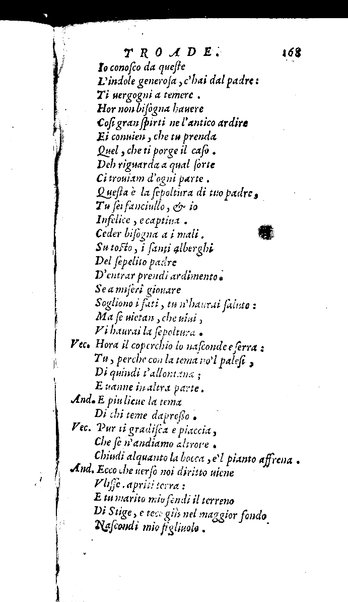 TROADE. 168
Io conosco da queste
L'indole generosa, c'hai dal padre:
Ti uergogni a temere.
Hor non bisogna hauere
Cosi gran spirti ne l'antico ardire
Ei conuien, che tu prenda
Quel, che ti porge il caso.
Deh riguarda a qual sorte
Ci trouiam d'ogni parte.
Questa è la sepoltura di tuo padre,
Tu sei fanciullo, & io
Infelice, e captiua.
Ceder bisogna a i mali.
Su tosto, i santi alberghi
Del sepelito padre
D'entrar prendi ardimento.
Se a miseri giouare
Sogliono i fati, tu n'haurai saluto:
Ma se uietan, che uiui,
Vi haurai la sepoltura.
Vec. Hora il coperchio lo nasconde e serra:
Tu, perche con la tema no'l palesi,
Di quindi t'allontana;
E uanne in altra parte.
And. E piu lieue la tema
Di chi teme dapresso.
Vec. Pur ti gradisca e piaccia,
Che se n'andiamo altroue.
Chiudi alquanto la bocca, e'l pianto affrena.
And. Ecco che uerso noi diritto uiene
Vlisse. apriti terra:
E tu marito mio fendi il terreno
Di Stige, e teco giù nel maggior fondo
Nascondi mio figliuolo.